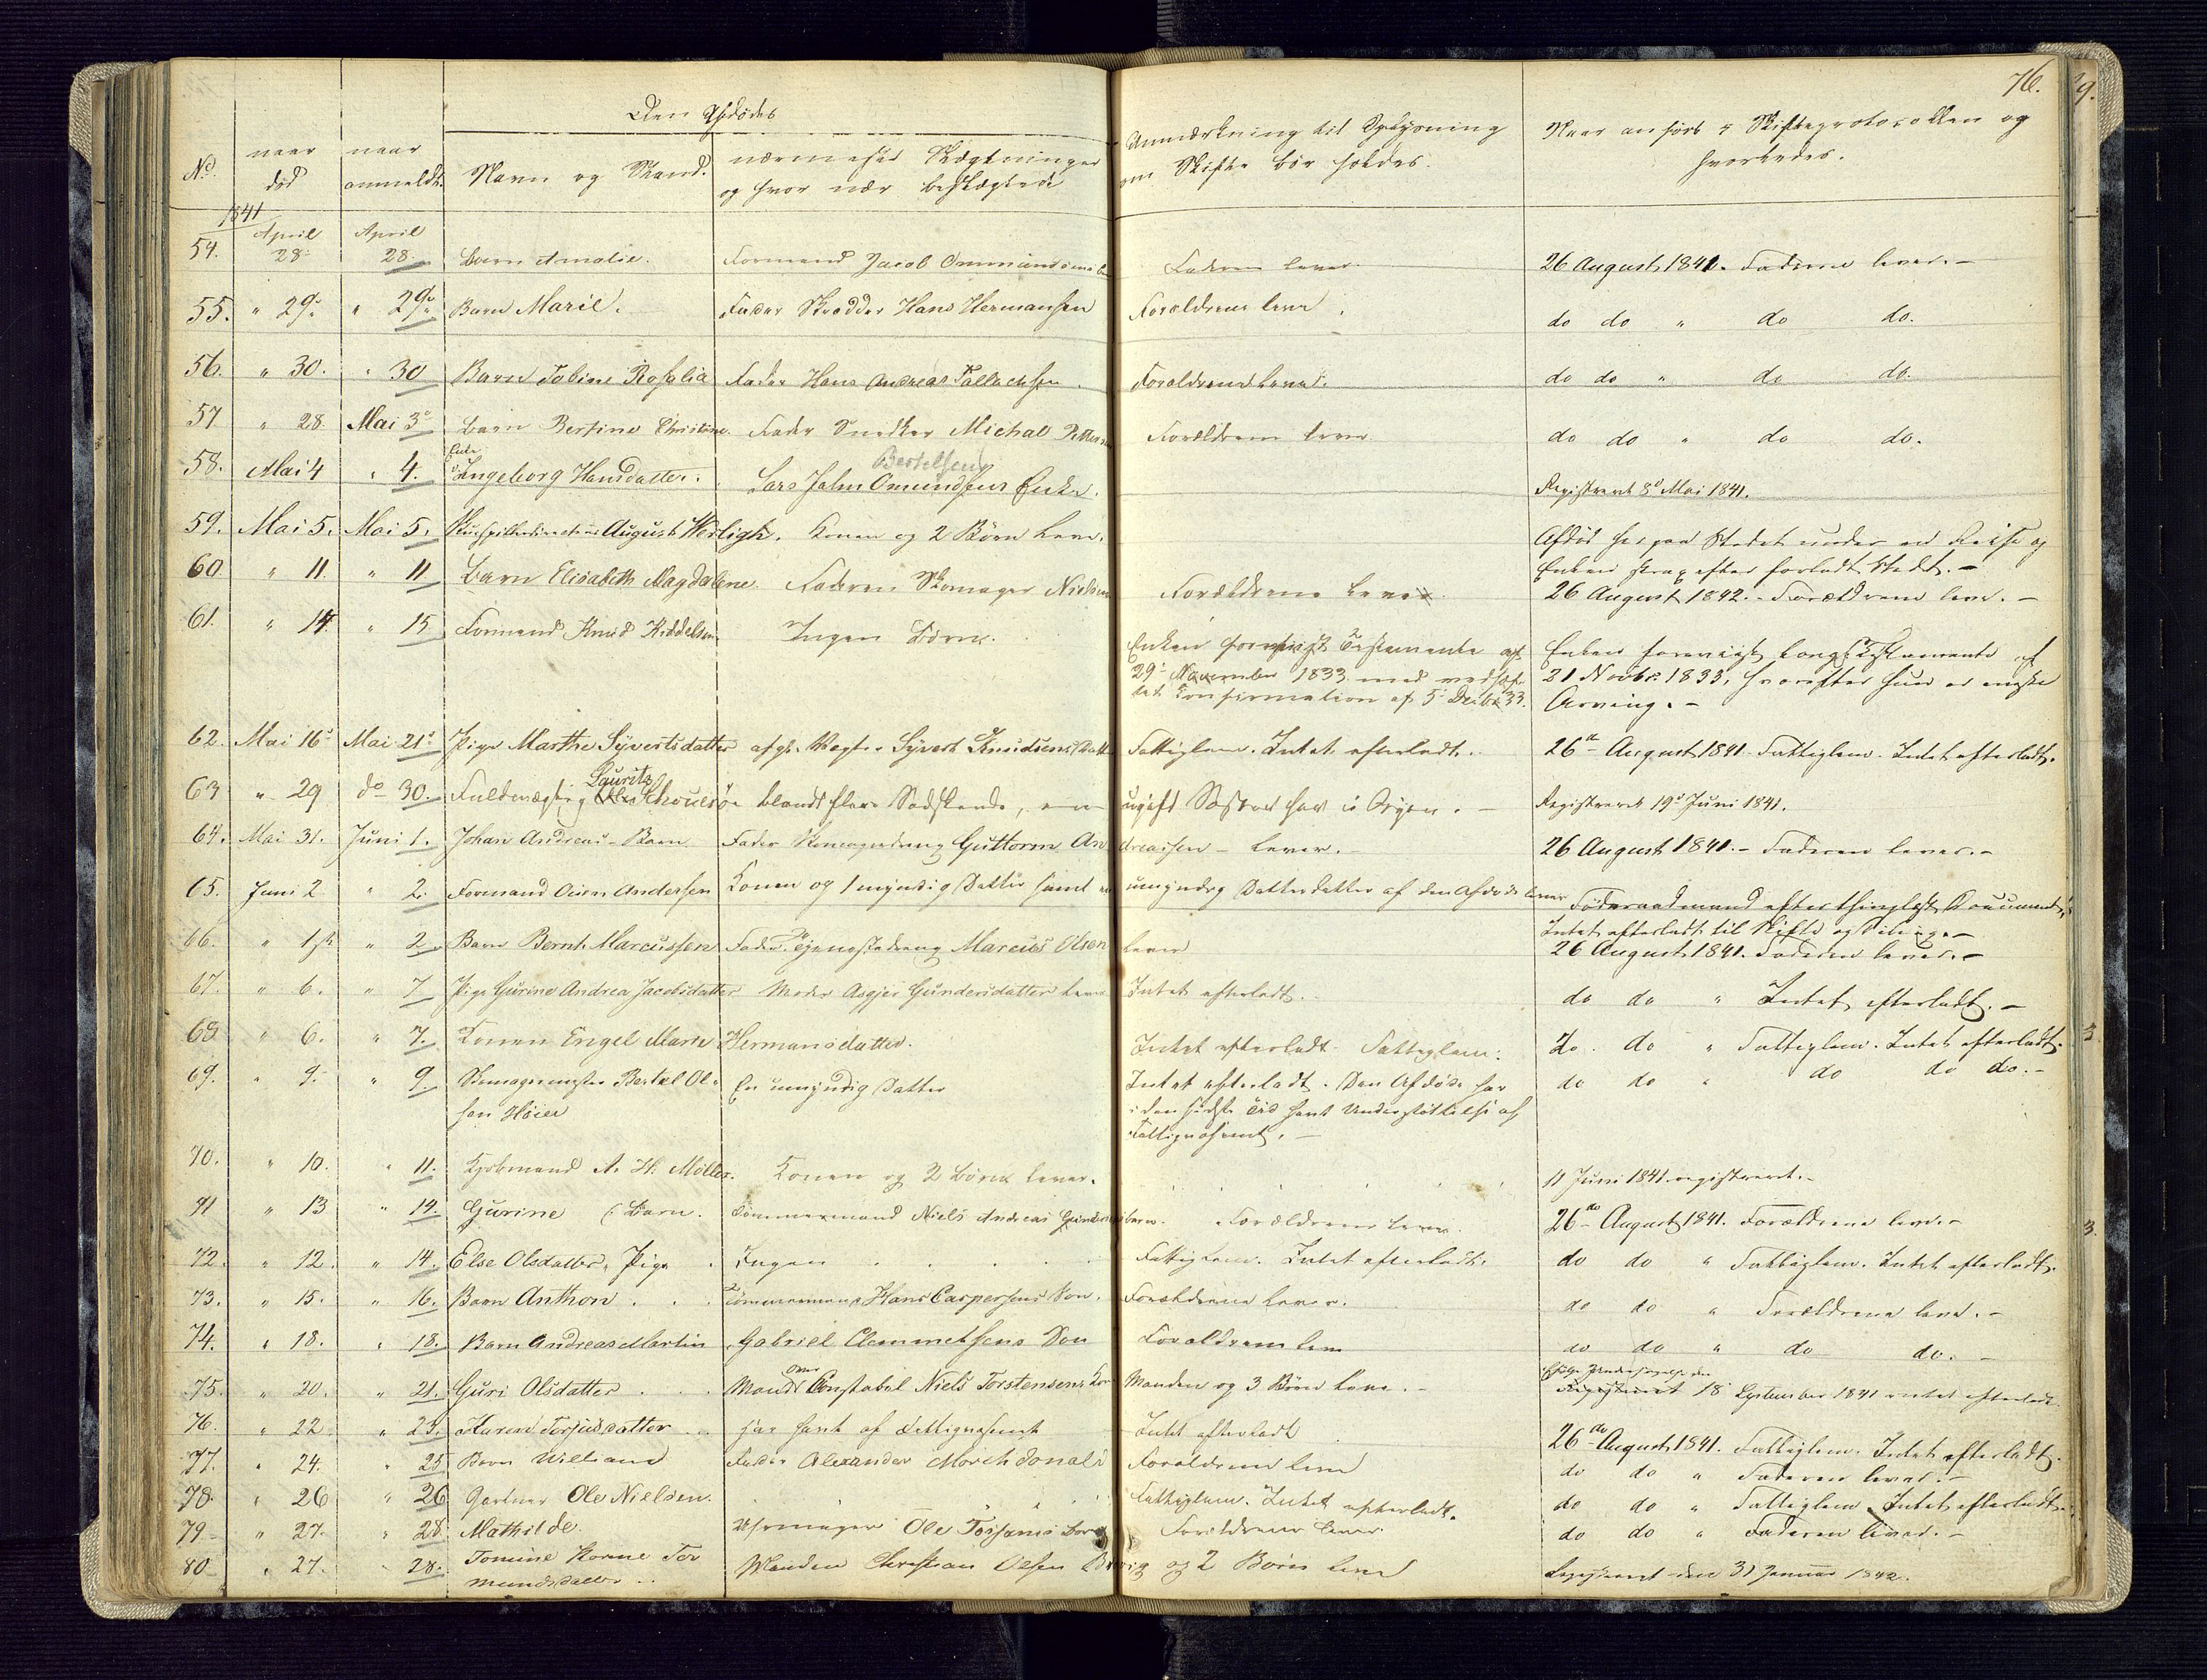 76.
Den Afdødes
No.
naar død
naar anmeldt.
Navn og Stand.
nærmeste Slægtninger og hvor nær beslægtede
Anmærkning til Oplysning om Skifte bør holdes.
Naar anført i Skifteprotocollen og hvorledes.
1841
54. April 28. April 28. Barn Amalie. Formand Jacob Ommundsens Faderen lever. 26 August 1841. Faderen lever. -
55. " 29. " 29. Barn Marie. Fader Skrædder Hans Hermansen Forældrene leve. do do " do do.
56. " 30. " 30 Barn Tobine Rosalia Fader Hans Andreas Tallachsen. Forældrene leve. do do " do do.
57 " 28. Mai 3. Barn Bertine Christine. Fader Snedker Michal Forældrene leve. do do " do do.
58. Mai 4 " 4. Enke Ingeborg Hansdatter. Lars Omundsens Enke. Bertelsen Registreret 8de Mai 1841.
59. Mai 5. Mai 5. August Werligh. Konen og 2 Børn leve. Afdød her paa Stedet under en Reise og
Enken strax efter forladt Stedet. -
60 " 11. " 11 Barn Elisabeth Magdalene. Faderen Skomager Nielsen Forældrene leve. 26 August 1842. - Forældrene leve. -
61. " 14. " 15 Formand Knud Kiddelsen. Ingen Børn. Enken foreviist Testamente af
29. November 1833 med vedhæftet Confirmation af 5. Decbr 33.
Enken foreviist Testamente af
21 Novbr. 1833, hvorefter hun er eneste
Arving. -
62. Mai 16. Mai 21. Pige Marthe Syvertsdatter afg. Vægter Syvert Knudsens Datter Fattiglem. Intet efterladt. 26de August 1841. Fattiglem. Intet efterladt.
63 " 29 do 30. Fuldmægtig Lauritz Thoulsøe blandt flere Sødskende, en ugift Søster her i Byen. - Registreret 19. Juni 1841.
64. Mai 31. Juni 1. Johan Andreas - Barn Fader Skomagerdreng Guttorm Andreassen - lever. - 26 August 1841. - Faderen lever. -
65. Juni 2 " 2. Formand Andersen Konen og 1 myndig Datter samt en umyndig Datterdatter af den Afdøde lever Føderaadmand efter thinglæst Document,
Intet efterladt til Skifte og Deling. -
66. " 1ste " 2. Barn Bernt Marcussen Fader Tjenestedreng Marcus Olsen lever 26 August 1841. Faderen lever. -
67. " 6. " 7 Pige Gurine Andrea Jacobsdatter Moder Asgjer Gundersdatter lever Intet efterladt. - do do " Intet efterladt. -
68 " 6. " 7. Konen Engel Marie Hermansdatter. Intet efterladt. Fattiglem. do do " Fattiglem. Intet efterladt.
69. " 9. " 9. Skomagermester Bertel Olsen Høier En umyndig Datter Intet efterladt. Den Afdøde har
i den sidste Tid havt Understøttelse af
Fattigvæsenet. - do do " do do do. -
70. " 10. " 11. Kjøbmand A. H. Møller. Konen og 2 Børn lever. 11 Juni 1841. registreret. -
71 " 13 " 14. Gurine (Barn. Tømmermand Niels Andreas Gundersens barn. Forældrene leve. 26de August 1841. Forældrene leve. -
72. " 12. " 14. Else Olsdatter, Pige Ingen Fattiglem. Intet efterladt. do do " Fattiglem. Intet efterladt.
73. " 15. " 16. Barn Anthon . . . Tømmermand Hans Caspersens Søn. Forældrene lever. do do " Forældrene leve. -
74. " 18. " 18. Barn Andreas Martin Gabriel Clemmetsens Søn Forældrene leve do do " do do. -
75. " 20. " 21. Guri Olsdatter . . . Mand Over Constabel Niels Torstensens Kone Manden og 3 Børn leve. - 18 September 1841 intet efterladt.
76. " 22. " 23. Karen Torjusdatter har havt af Fattigvæsenet Intet efterladt 26de August 1841. Fattiglem. Intet efterladt.
77. " 24. " 25 Barn William Fader Alexander Forældrene leve do do " Faderen lever. -
78. " 26 " 26 Gartner Ole Nielsen. Fattiglem. Intet efterladt. do do " Fattiglem. Intet efterladt.
79 " 27. " 28 Mathilde. Uhrmager Ole Barn Forældrene lever. do do " Faderen lever. -
80 " 27. " 28. Tomine Tormundsdatter Manden Christian Olsen Brevig og 2 Børn leve Registreret den 31 Januar 1842.